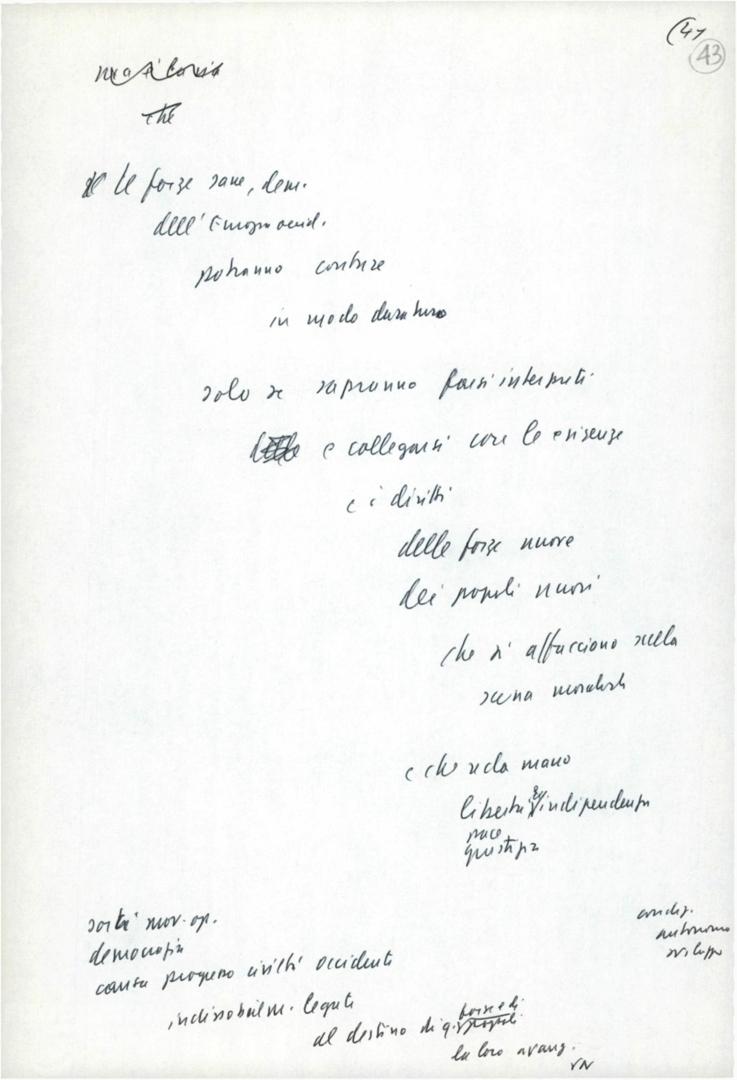 (47
43
che
le forze sane, dem.
dell'Europa occid.
potranno contare
in modo duraturo
solo se sapranno farsi interpreti
e collegarsi con le esigenze
e i diritti
delle forze nuove
dei popoli nuovi
che si affacciano sulla
scena mondiale
e che domandano
libertà e indipendenza
pace
giustizia
sorti mov. op.
democrazia
causa progresso civiltà occidente
indissolubilm. legate
al destino di q. forze e di
popoli
la loro avanz.
VN
condiz.
autonomo
sviluppo